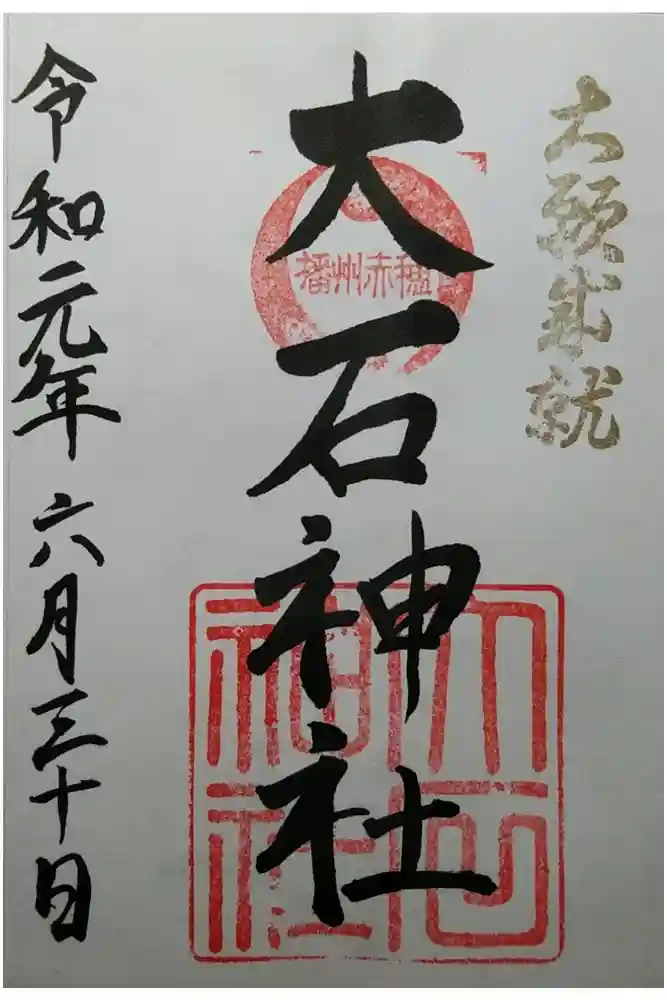 大願成就
大石神社
播州赤穂
大石神社
令和元年六月三十日